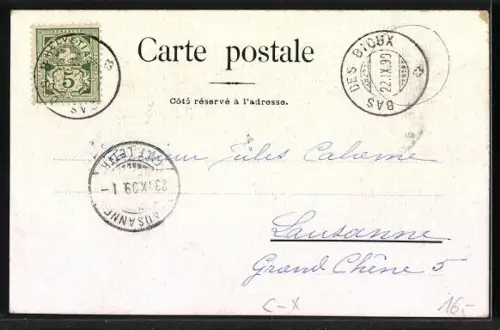 HELVETIA
5
BAS
Carte postale
Côté réservé à l'adresse.
BAS DES BIOUX
22.IX.99
23.IX.99.1
LAUSANNE
Jules
Lausanne
Grand Chêne 5
C-X
16.-